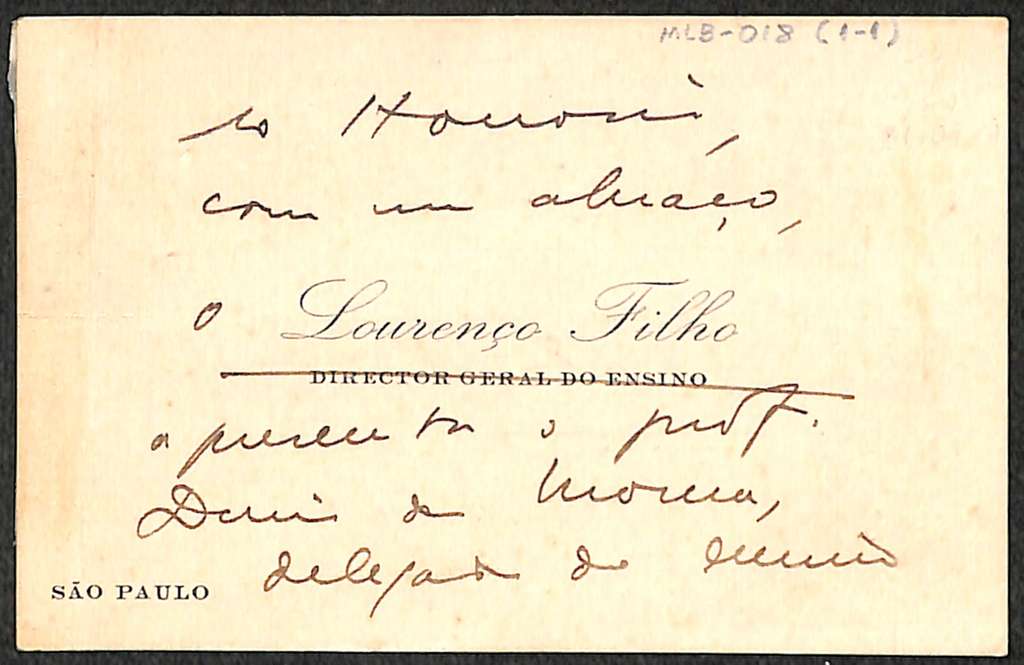 MLB-018 (1-1)
Ao Honorio,
com um abraço,
o Lourenço Filho
DIRECTOR GERAL DO ENSINO
apresenta o prof.
de Moura,
delegado do ensino
SÃO PAULO